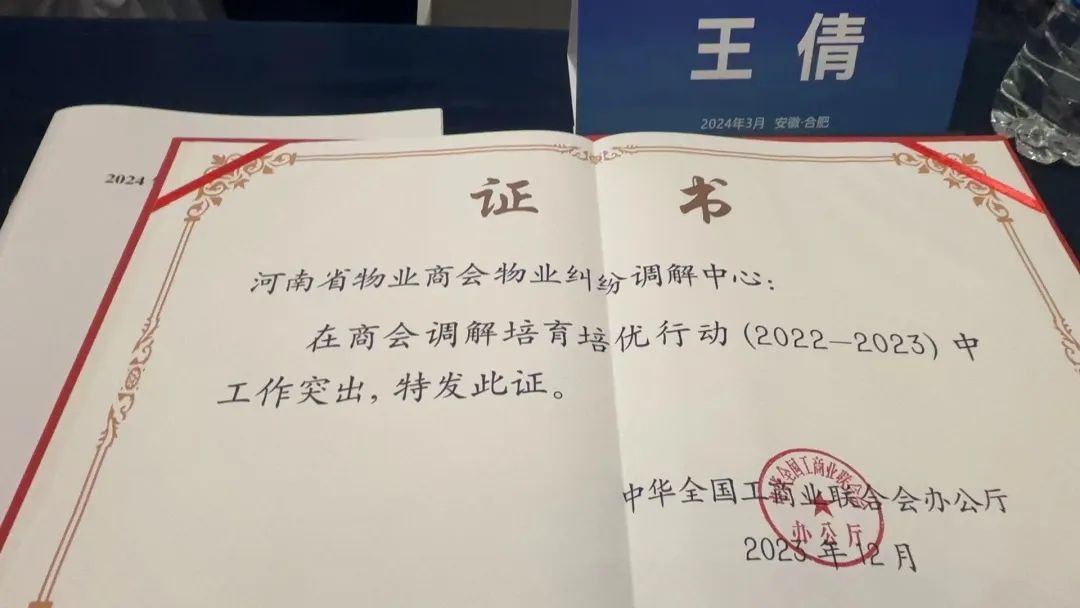 王倩
2024年3月 安徽·合肥
2024
证书
河南省物业商会物业纠纷调解中心：
在商会调解培育培优行动(2022—2023)中
工作突出，特发此证。
中华全国工商业联合会办公厅
2023年12月
办公厅